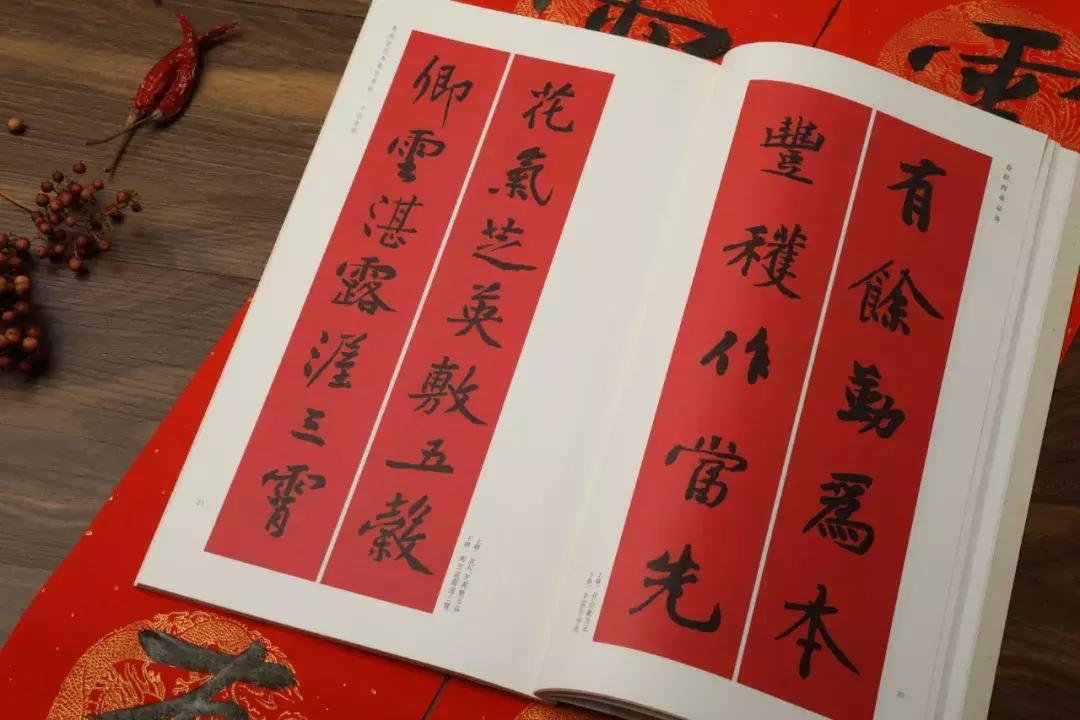 有餘勤爲本
豐穫作當先
花氣芝英敷五穀
卿雲湛露渥三霄
20
21